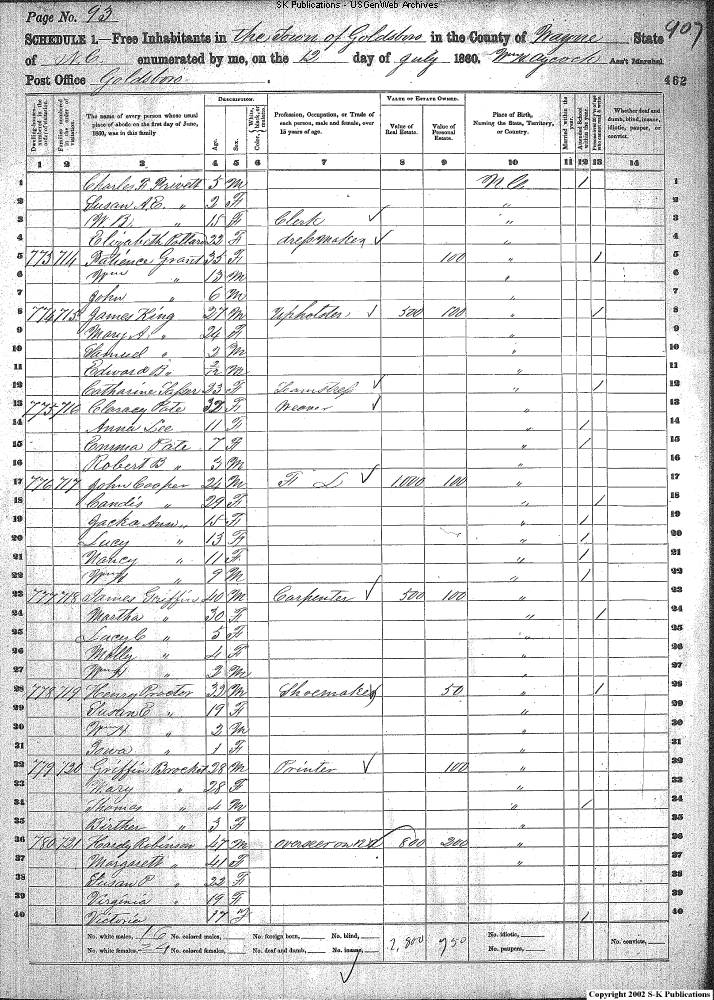 SK Publications - USGenWeb Archives
Page No. 93
SCHEDULE 1.—Free Inhabitants in the Town of Goldsboro in the County of Wayne State 907
of N.C. enumerated by me, on the 12 day of July 1860. Wm Haycock Ass't Marshal
Post Office Goldsboro. 462
DESCRIPTION. VALUE OF ESTATE OWNED.
Dwelling-houses numbered in the order of visitation. Families numbered in the order of visitation. The name of every person whose usual place of abode on the first day of June, 1860, was in this family Age. Sex. Color, White, black, or mulatto. Profession, Occupation, or Trade of each person, male and female, over 15 years of age. Value of Real Estate. Value of Personal Estate. Place of Birth, Naming the State, Territory, or Country. Married within the year. Attended School within the year. Persons over 20 y'rs of age who cannot read & write. Whether deaf and dumb, blind, insane, idiotic, pauper, or convict.
1 2 3 4 5 6 7 8 9 10 11 12 13 14
1 Charles T. Privett 5 M N.C. / 1
2 Susan A.E. " 2 F " 2
3 W.B. " 15 F Clerk ✓ " 3
4 Elizabeth Pollard 22 F dressmaker ✓ " 4
5 773 714 Patience Grant 35 F 100 " / 5
6 Wm " 13 M " 6
7 John " 6 M " 7
8 774 715 James King 27 M Upholster ✓ 500 100 " / 8
9 Mary A. " 24 F " 9
10 Samuel " 2 M " 10
11 Edward B. " 2/12 M " 11
12 Catharine 23 F Seamstress ✓ " / 12
13 775 716 Claracy Pate 32 F Weaver ✓ " 13
14 Anna Lee 11 F " / 14
15 Emma Pate 7 F " / 15
16 Robert B " 3 M " 16
17 776 717 John Cooper 24 M F L ✓ 1,000 100 " 17
18 Candis " 29 F " / 18
19 Jacka Ann " 15 F " / 19
20 Lucy " 13 F " / 20
21 Nancy " 11 F " / 21
22 Wm " 9 M " / 22
23 777 718 James Griffin 40 M Carpenter ✓ 500 100 " 23
24 Martha " 30 F " / 24
25 Lucy C " 5 F " 25
26 Molly " 4 F " 26
27 Wm " 2 M " 27
28 778 719 Henry Proctor 33 M Shoemaker 50 " / 28
29 Susan E " 19 F " 29
30 Wm " 2 M " 30
31 Iowa " 1 F " 31
32 779 720 Griffin Brocket 28 M Printer ✓ 100 " 32
33 Mary " 28 F " 33
34 Thomas " 4 M " / 34
35 Birther " 3 F " 35
36 780 721 Hardy Robinson 47 M overseer on R.R 800 200 " 36
37 Margareth " 41 F " 37
38 Susan P " 22 F 38
39 Virginia " 19 F 39
40 Victoria 17 F / 40
No. white males, 16 No. colored males, No. foreign born, No. blind, 2,800 950 No. idiotic, No. convicts,
No. white females, 24 No. colored females, No. deaf and dumb, No. insane, No. paupers,
Copyright 2002 S-K Publications